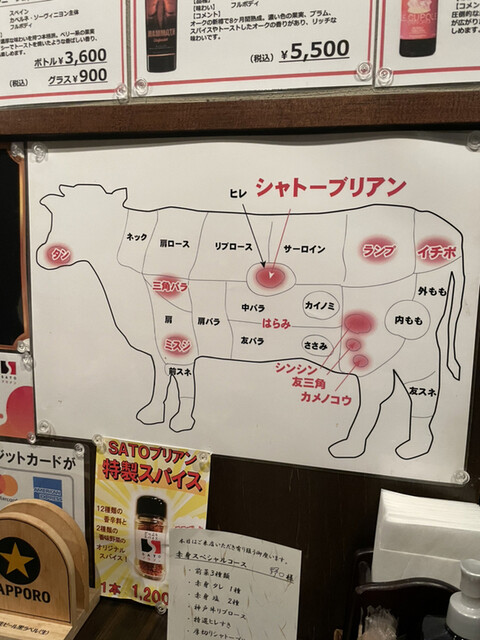 スペイン
カベルネ・ソーヴィニヨン主体
フルボディ
ボトル¥3,600
(税込) グラス¥900
【味わい】 フルボディ
【コメント】
オークの新樽で8ヶ月間熟成。濃い色の果実、プラム、
スパイスやトーストしたオークの香りがあり、リッチな
味わいです。
(税込) ¥5,500
【コメ
圧倒的な
ヒレ シャトーブリアン
タン
ネック
肩ロース
リブロース
サーロイン
ランプ
イチボ
三角バラ
中バラ
カイノミ
外もも
肩
肩バラ
はらみ
内もも
ミスジ
友バラ
ささみ
前スネ
シンシン
友三角
カメノコウ
友スネ
ジットカードが
AMERICAN
EXPRESS
SAPPORO
SATOブリアン
特製スパイス
12種類の
香辛料と
2種類の
香味野菜の
オリジナル
スパイス!
1本 1,200
本日はご来店いただき有り難う御座います。
赤身スペシャルコース
・前菜3種類
・赤身タレ 1種
・赤身塩 2種
・神戸牛リブロース
・特選ヒレすき
・厚切りシャトーブ